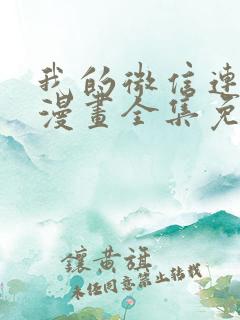 我的微信連
漫畫全集免
鑲黃旗
未经同意禁止转载